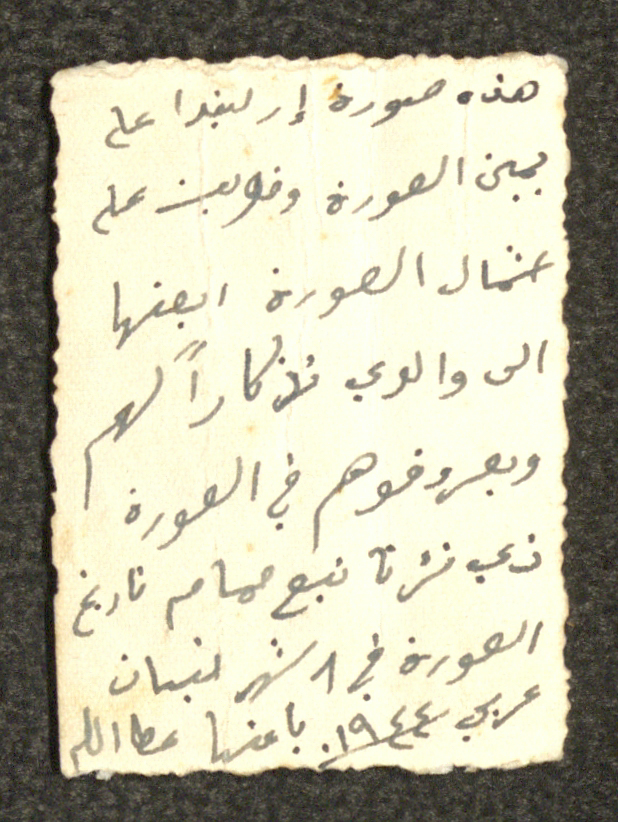 هذه صورة إر لبندا على
يمين الصورة وفوليت على
شمال الصورة ابعثها
الى والدي تذكاراً لهم
وبعروفوهم في الصورة
تبع تاريخ
الصورة في ٨ شهر نيسان
عربي ١٩٤٤ باعثها عطاالله